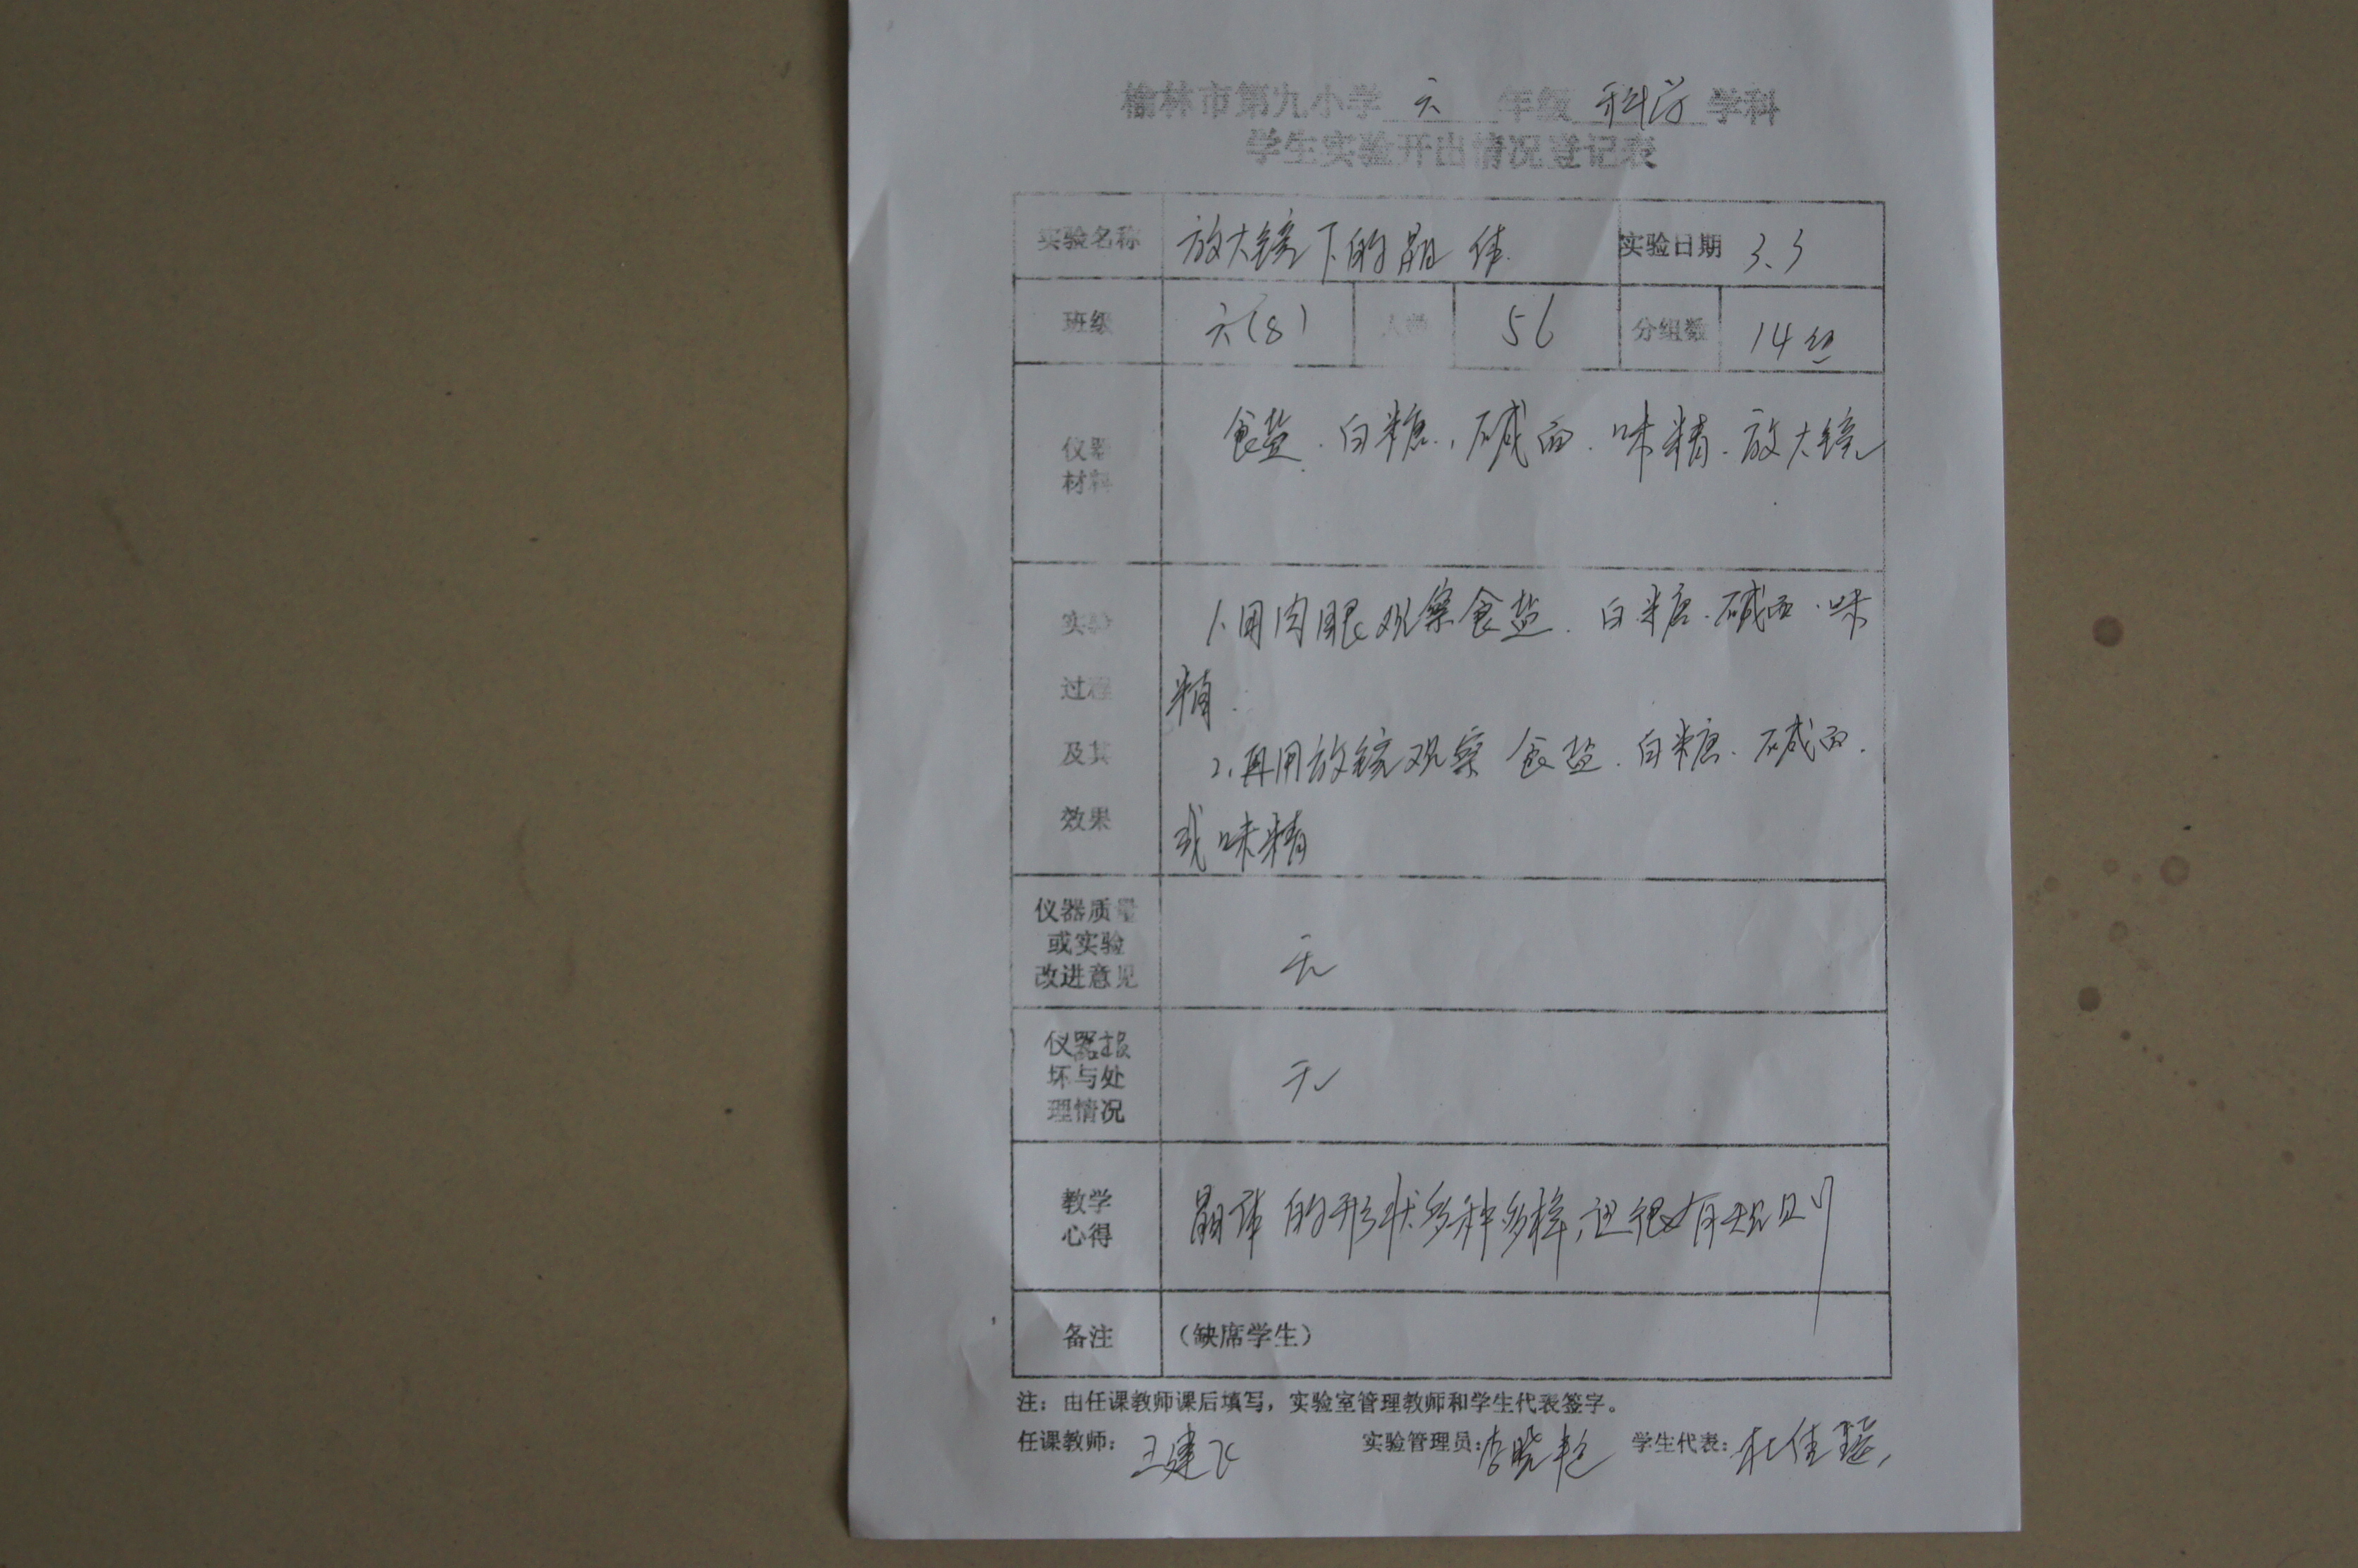 榆林市第九小学 六 年级 科学 学科
学生实验开出情况登记表
实验名称 放大镜下的晶体 实验日期 3.3
班级 六(8) 人数 56 分组数 14组
仪器 食盐.白糖.碱面.味精.放大镜
材料
实验 1.用肉眼观察食盐.白糖.碱面.味
过程 精.
及其 2.再用放镜观察食盐.白糖.碱面.
效果 或味精
仪器质量
或实验 无
改进意见
仪器损
坏与处 无
理情况
教学 晶体的形状多种多样,还很有规则
心得
备注 (缺席学生)
注:由任课教师课后填写,实验室管理教师和学生代表签字。
任课教师: 王建飞 实验管理员: 李晓艳 学生代表: 杜佳